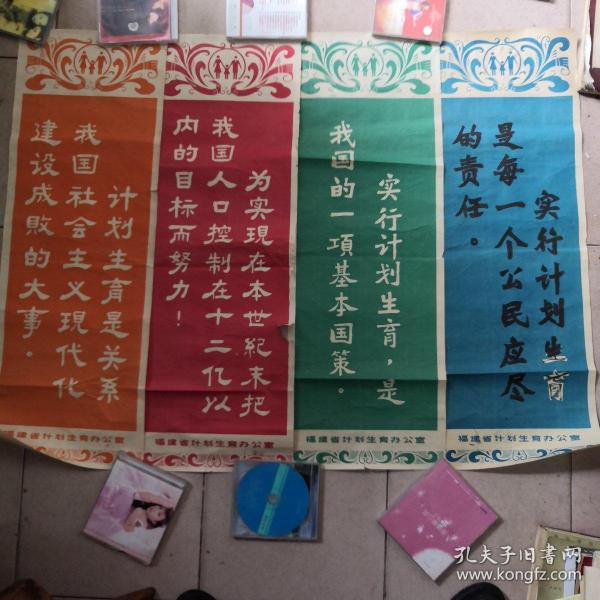 实行计划生育
是每一个公民应尽
的责任。
福建省计划生育办公室
实行计划生育，是
我国的一項基本国策。
福建省计划生育办公室
为实現在本世紀末把
我国人口控制在十二亿以
内的目标而努力！
福建省计划生育办公室
计划生育是关系
我国社会主义現代化
建设成敗的大事。
福建省计划生育办公室
孔夫子旧书网
www.kongfz.com